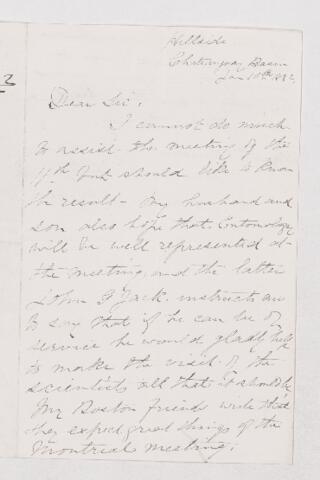 Hillside
Chateauguay Basin
Jan 10th 1882,
Dear Sir;
I cannot do much
to assist the meeting of the
11th but should like to know
the result - my husband and
son also hope that Entomology
will be well represented at
the meeting, and the latter
John G Jack. instructs me
to say that if he can be of
service he would gladly help
to make the visit of the
scientists all that it should be
My Boston friends write that
they expect great things of the
Montreal meeting;
2